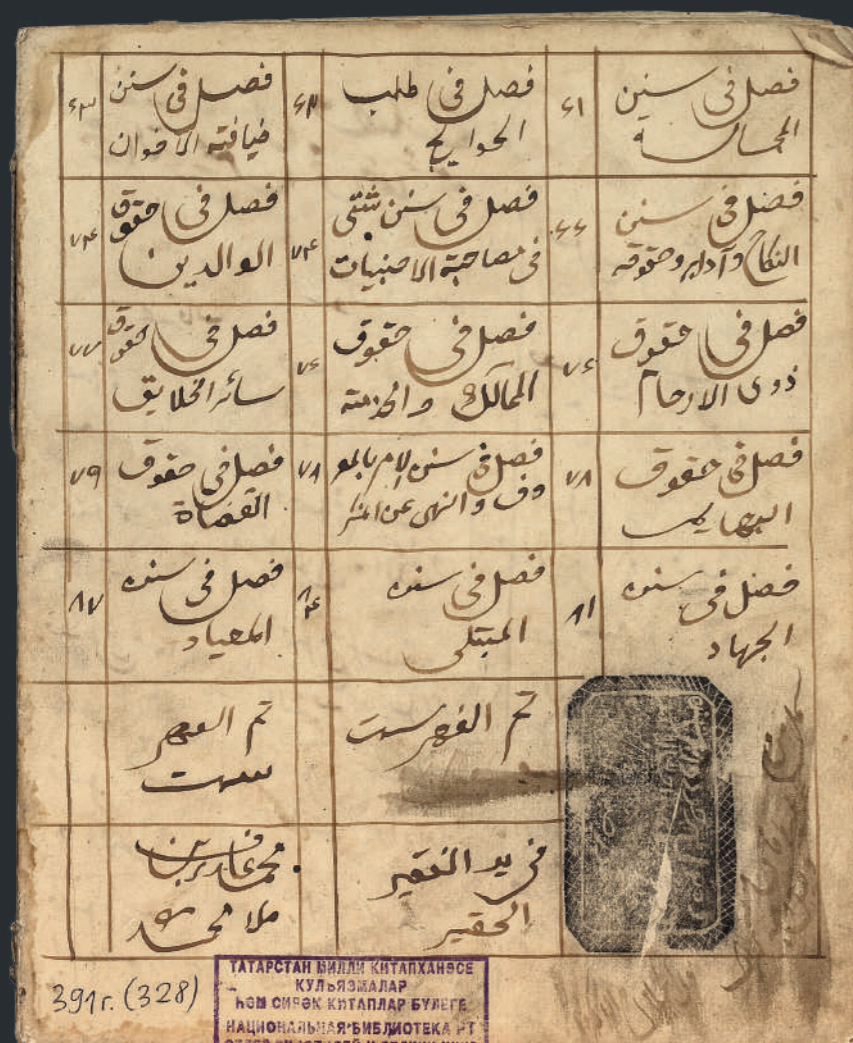 فصل فى سنن
المجالسة
٤١
فصل فى طلب
الحوايج
٤٣
فصل فى سنن
ضيافته الاخوان
٤٣
فصل فى سنن
النكاح وآدابه وحقوقه
٤٤
فصل فى سنن شتى
فى مصاحبة الاجنبيات
٧٣
فصل فى حقوق
الوالدين
٧٤
فصل فى حقوق
ذوى الارحام
٧٤
فصل فى حقوق
المماليك والخدمته
٧٤
فصل فى حقوق
سائر الخلايق
٧٧
فصل فى حقوق
البهايم
٧٨
فصل فى سنن الامر بالمعر
وف والنهى عن المنكر
٧٨
فصل فى حقوق
القضاة
٧٩
فصل فى سنن
الجهاد
٨١
فصل فى سنن
المبتلى
٨٤
فصل فى سنن
٨٧
تم الفهرست
تم الفهر
ست
فى يد الفقير
الحقير
ملا محمد
391г. (328)
ТАТАРСТАН МИЛЛИ КИТАПХАНӘСЕ
КУЛЪЯЗМАЛАР
ҺӘМ СИРӘК КИТАПЛАР БҮЛЕГЕ
НАЦИОНАЛЬНАЯ БИБЛИОТЕКА РТ